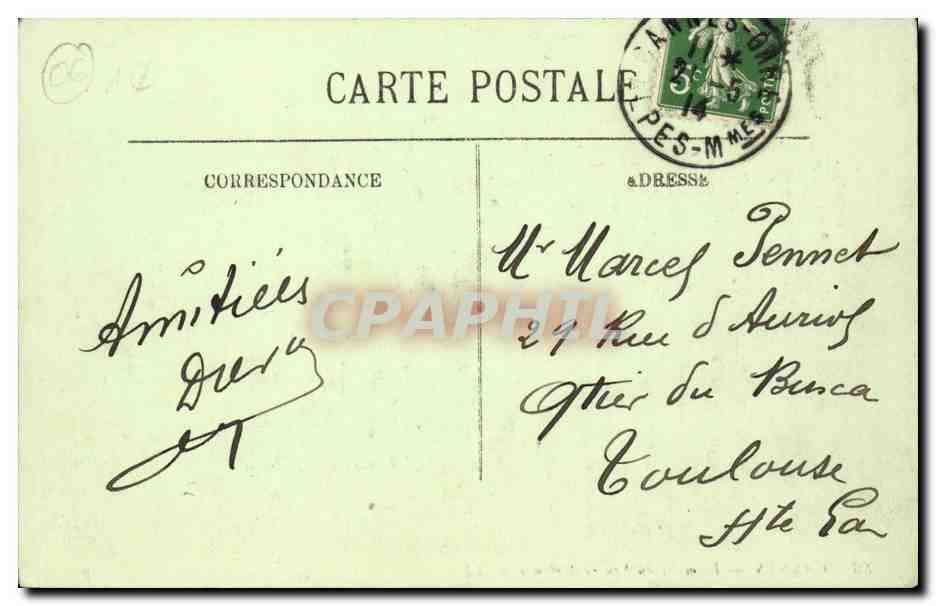 06
CARTE POSTALE
CANNES-GARE
11 *
21-5
14
ALPES-Mmes
5c
POSTES
CORRESPONDANCE
ADRESSE
Amitiés
Mr Marcel Pennet
29 Rue d'Auriol
Qtier du Busca
Toulouse
Hte Gar
CPAPHIL